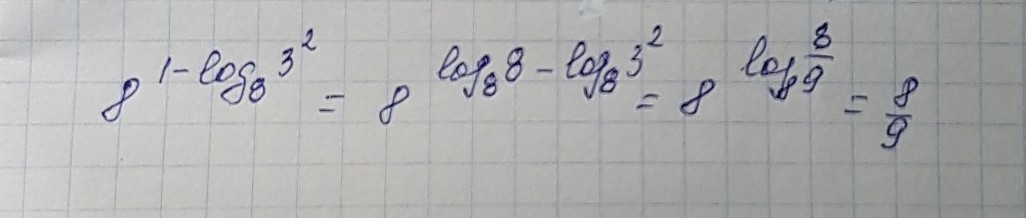 8^{1-log_8 3^2} = 8^{log_8 8 - log_8 3^2} = 8^{log_8 \frac{8}{9}} = \frac{8}{9}